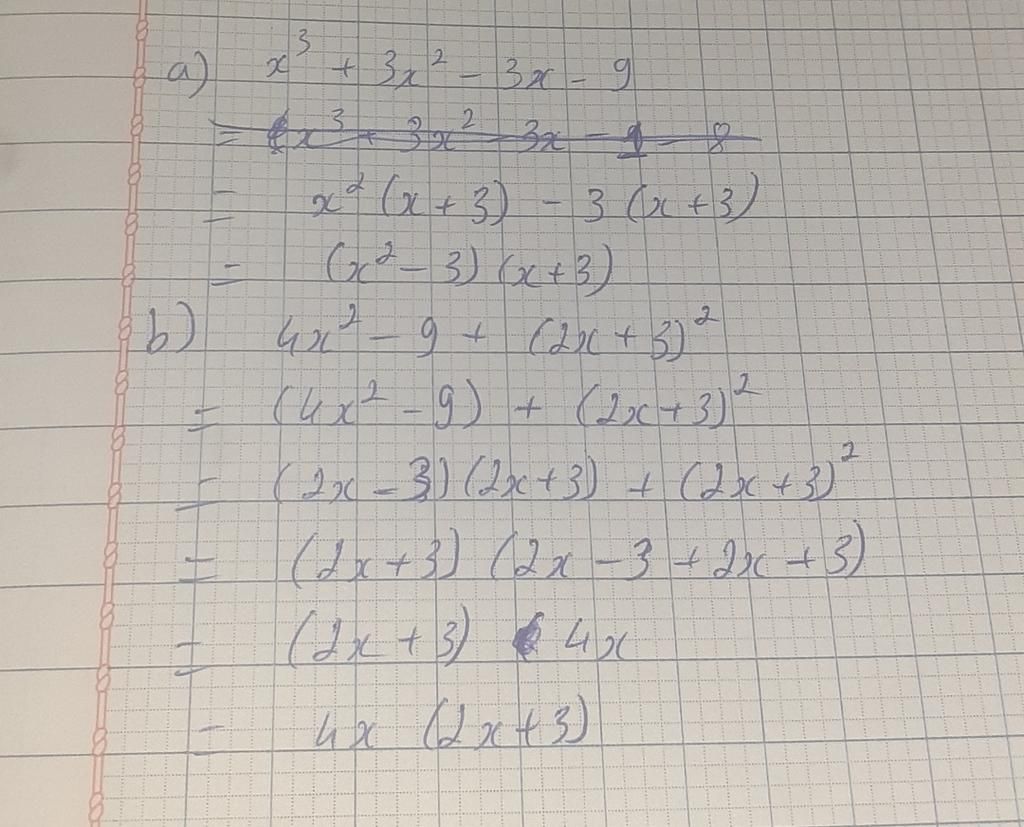 a) x³ + 3x² - 3x - 9
= (x³ + 3x² - 3x - 1 - 8
= x² (x + 3) - 3 (x + 3)
= (x² - 3) (x + 3)
b) 4x² - 9 + (2x + 3)²
= (4x² - 9) + (2x + 3)²
= (2x - 3) (2x + 3) + (2x + 3)²
= (2x + 3) (2x - 3 + 2x + 3)
= (2x + 3) 4x
= 4x (2x + 3)